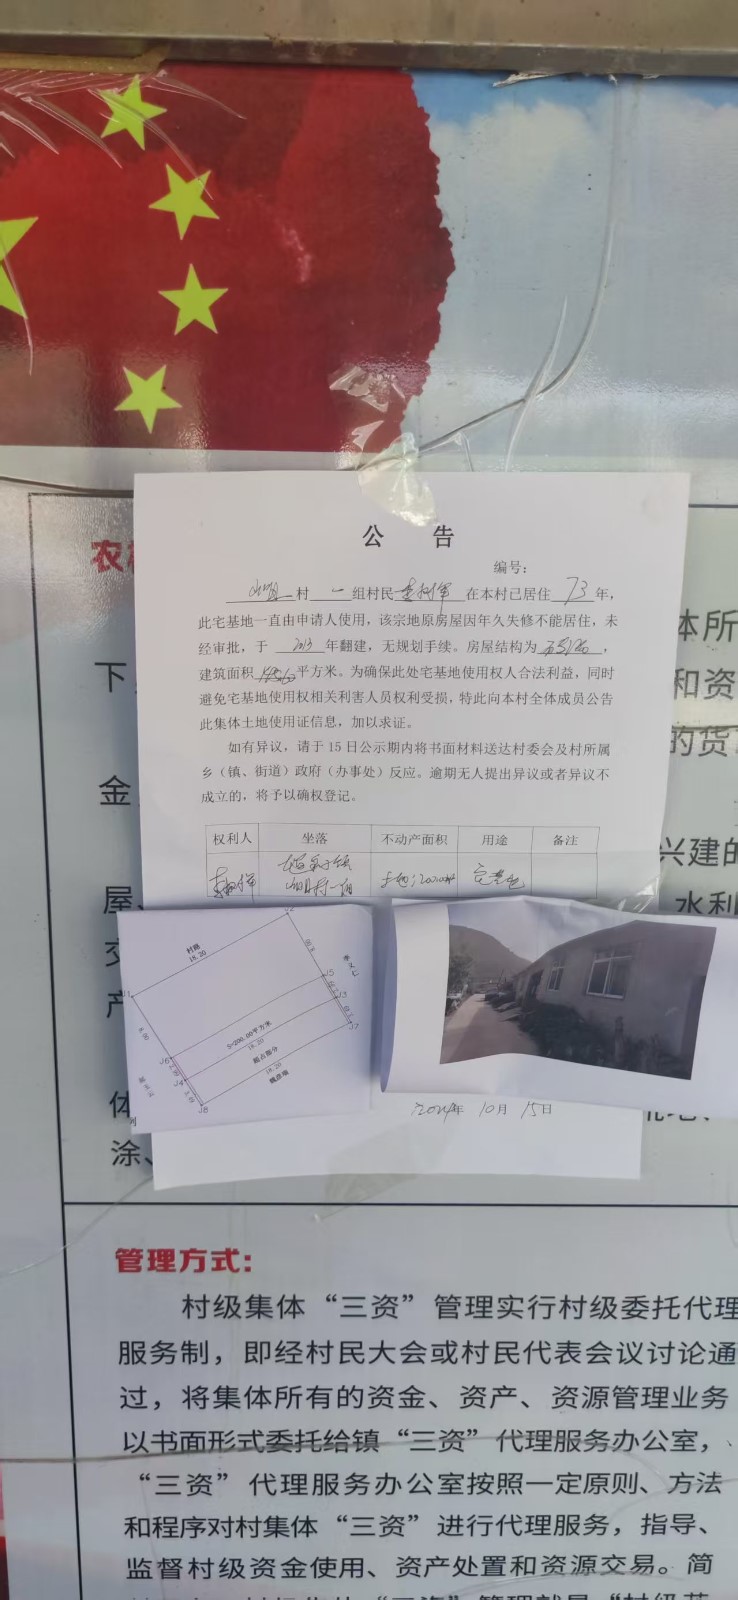 农
体所
下
和资
的货
金
兴建的
屋、
水利
交
产
体
涂、
公 告
编号：
村 一 组村民 在本村已居住 73 年，
此宅基地一直由申请人使用，该宗地原房屋因年久失修不能居住，未
经审批，于 2013 年翻建，无规划手续。房屋结构为 ，
建筑面积 平方米。为确保此处宅基地使用权人合法利益，同时
避免宅基地使用权相关利害人员权利受损，特此向本村全体成员公告
此集体土地使用证信息，加以求证。
如有异议，请于 15 日公示期内将书面材料送达村委会及村所属
乡（镇、街道）政府（办事处）反应。逾期无人提出异议或者异议不
成立的，将予以确权登记。
权利人 坐落 不动产面积 用途 备注
村路
18.20
J1
J2
J5
J3
J7
J6
J4
J8
S=200.00平方米
18.20
超占部分
18.20
2024年 10月 15日
管理方式：
村级集体“三资”管理实行村级委托代理
服务制，即经村民大会或村民代表会议讨论通
过，将集体所有的资金、资产、资源管理业务
以书面形式委托给镇“三资”代理服务办公室，
“三资”代理服务办公室按照一定原则、方法
和程序对村集体“三资”进行代理服务，指导、
监督村级资金使用、资产处置和资源交易。简